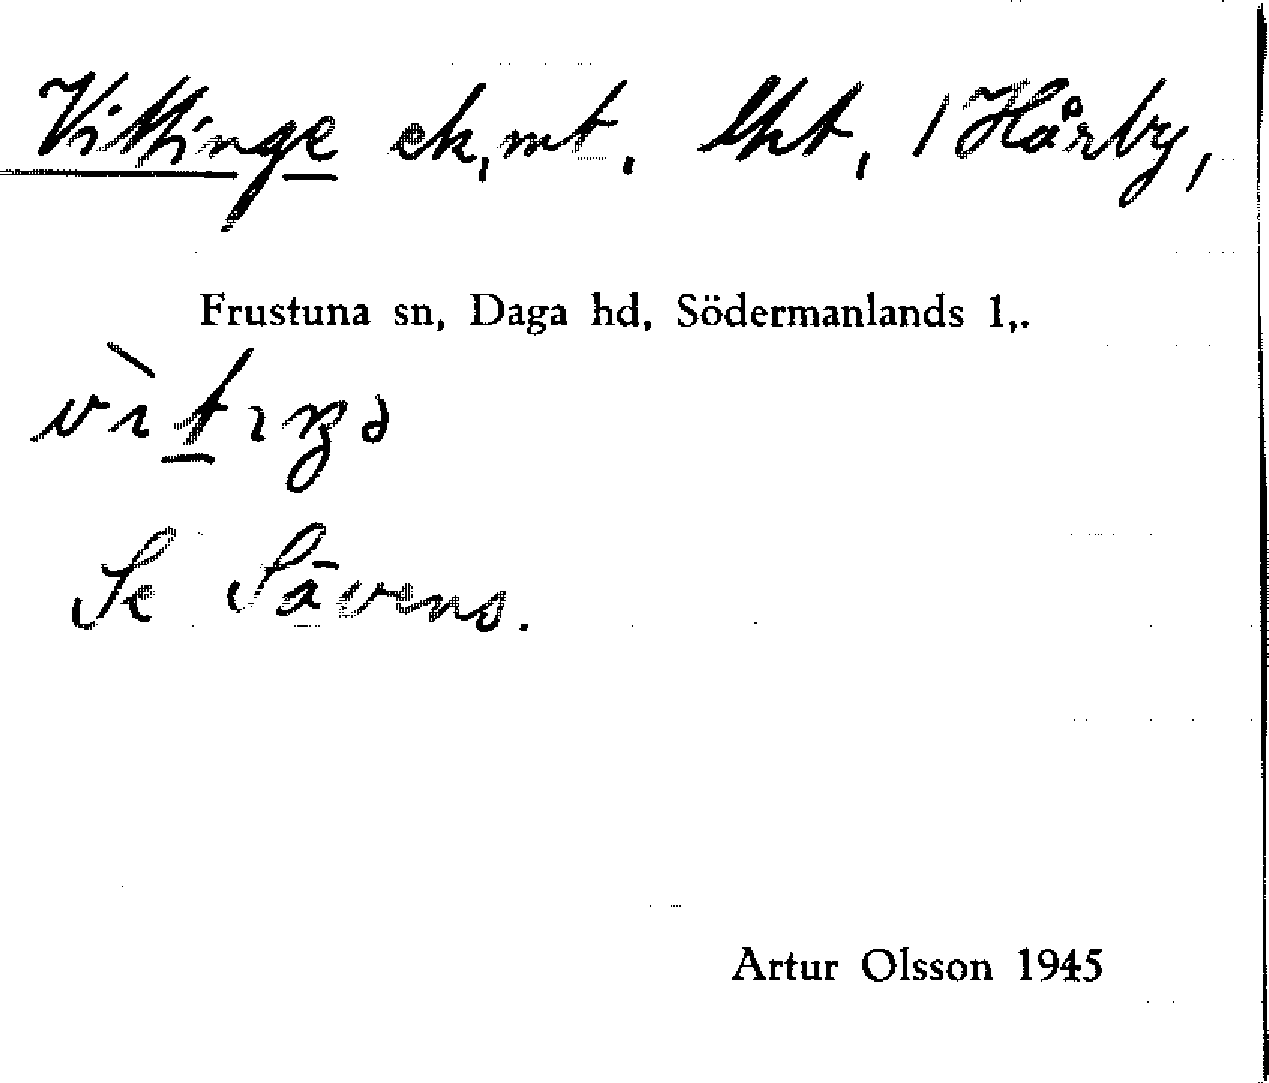 Vittinge ek, mt, lht, / Hårby,
Frustuna sn, Daga hd, Södermanlands l,.
Se Sävens.
Artur Olsson 1945